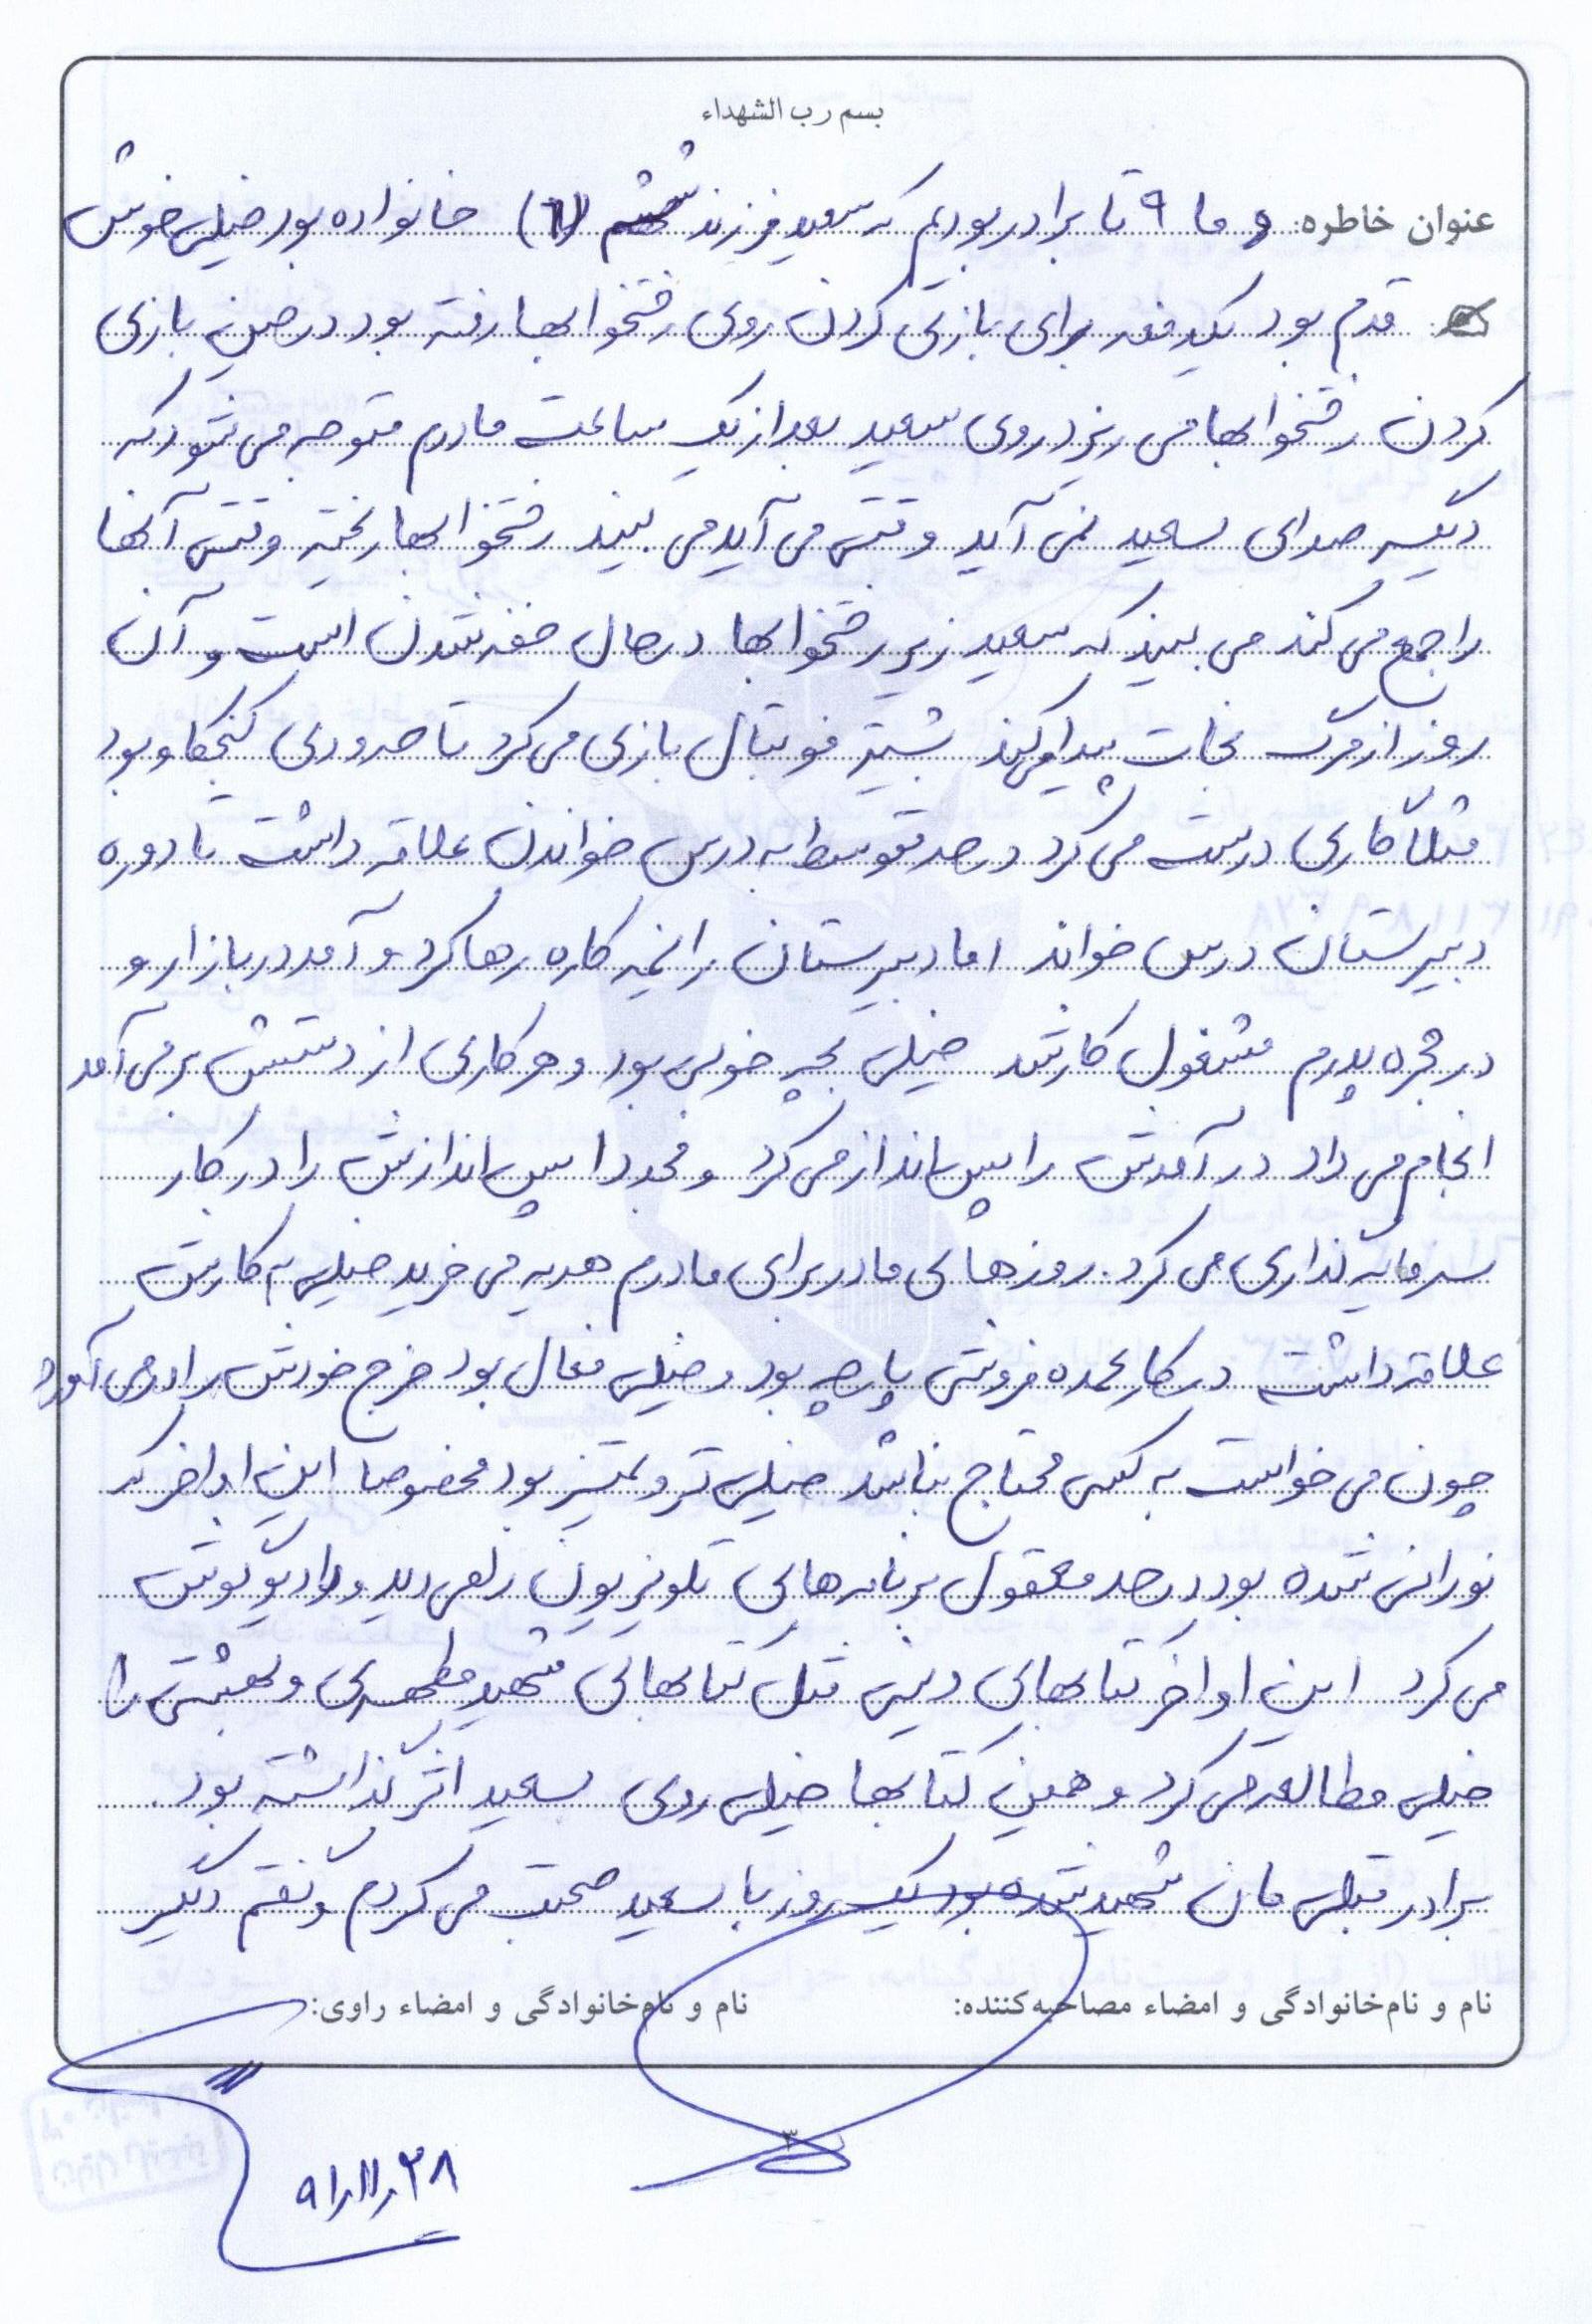 بسم رب الشهداء
عنوان خاطره: و ما ۹ تا برادر بودیم که سعید فرزند ششم (۶) خانواده بود خیلی خوش
قدم بود یکدفعه برای بازی کردن روی رختخوابها رفته بود در حین بازی
کردن رختخوابها می ریزد روی سعید بعد از یک ساعت مادرم متوجه می شود که
دیگر صدای سعید نمی آید وقتی می آید می بیند رختخوابها ریخته وقتی آنها
را جمع می کند می بیند که سعید زیر رختخوابها در حال خفه شدن است و آن
روز از مرگ نجات پیدا می کند بیشتر فوتبال بازی می کرد تا حدودی کنجکاو بود
مثلاً کاری درست می کرد در حد متوسط به درس خواندن علاقه داشت تا دوره
دبیرستان درس خواند اما دبیرستان را نیمه کاره رها کرد و آمد در بازار و
در حجره پدرم مشغول کار شد خیلی بچه خوبی بود و هر کاری از دستش بر می آمد
انجام می داد در آمدش را پس انداز می کرد و مجددا پس اندازش را در کار
سرمایه گذاری می کرد. روزهای مادر برای مادرم هدیه می خرید خیلی به کارش
علاقه داشت در کار عمده فروشی پارچه بود و خیلی فعال بود خرج خودش را در می آورد
چون می خواست به کسی محتاج نباشد خیلی تر و تمیز بود مخصوصا این اواخر که
نورانی شده بود در حد معقول برنامه های تلویزیون را می دید و رادیو گوش
می کرد این اواخر کتابهای دینی مثل کتابهای شهید مطهری و بهشتی را
خیلی مطالعه می کرد و همین کتابها خیلی روی سعید اثر گذاشته بود.
برادر قبلی مان شهید شده بود یک روز با سعید صحبت می کردم و گفتم دیگر
نام و نام‌خانوادگی و امضاء مصاحبه‌کننده: نام و نام‌خانوادگی و امضاء راوی:
۳
۹۱/۱۱/۲۸